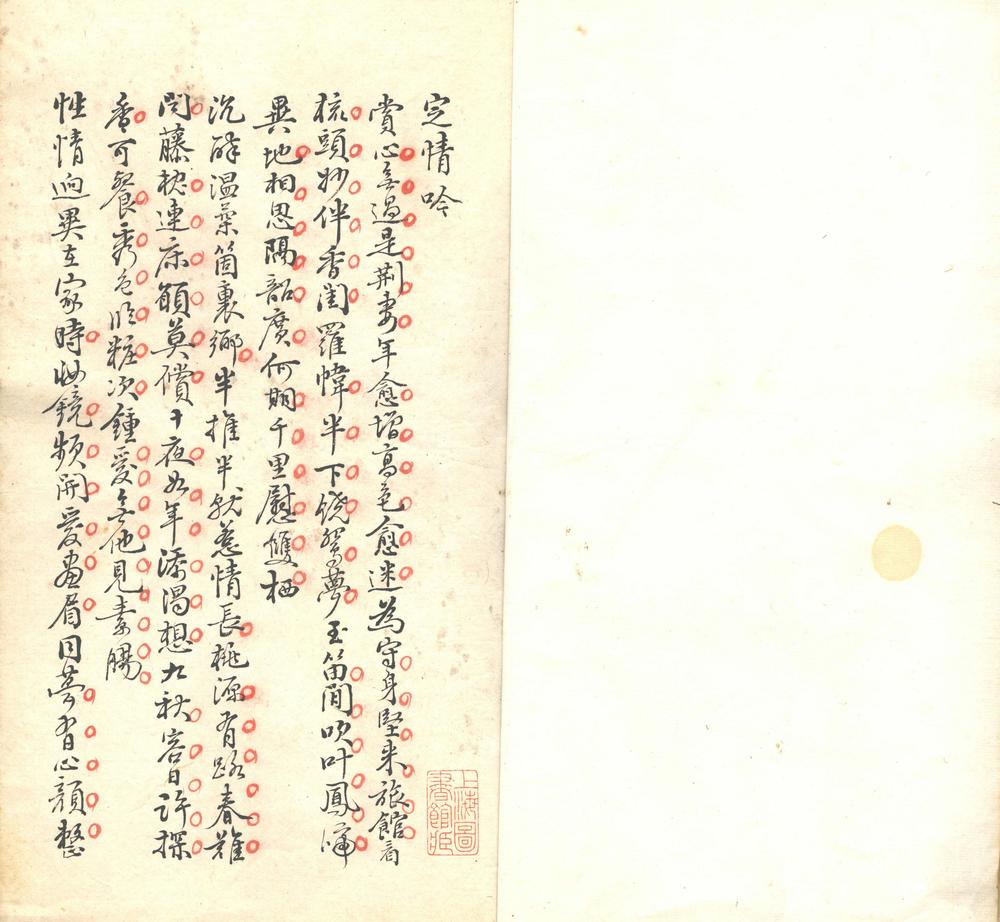 定情吟
賞心無過是荆妻年愈增高色愈迷為守身堅来旅館肩
梳頭妙伴香閨羅幃半下饒鴛夢玉笛閒吹叶鳳
異地相思隔韶廣何期千里慰雙栖
沉酣温柔箇裏鄉半推半就惹情長桃源有路春難
問藤枕連床願莫償十夜如年添渴想九秋容日許探
香可餐秀色臨粧次鍾愛無他見素腸
性情逈異在家時妝鏡頻開愛畫眉同夢有心顔整
上海圖書館藏